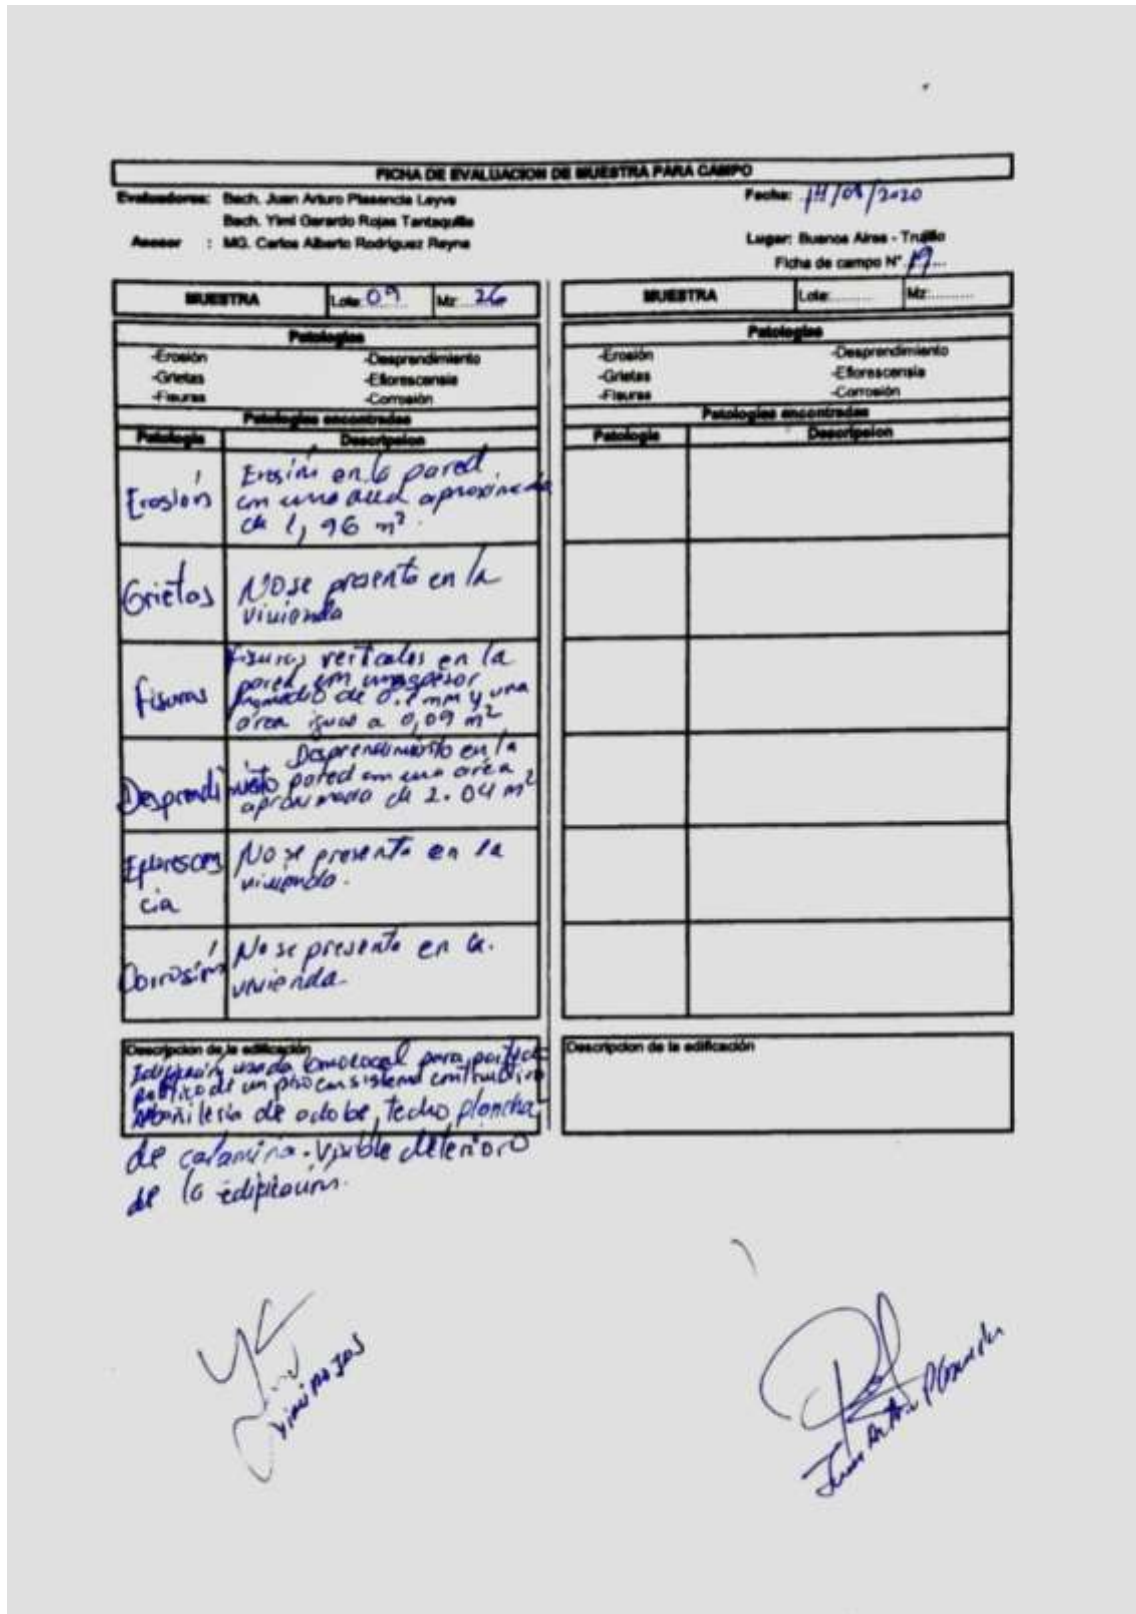 FICHA DE EVALUACION DE MUESTRA PARA CAMPO
Evaluadores: Bach. Juan Arturo Plasencia Leyva
Fecha: 14/08/2020
Bach. Yimi Gerardo Rojas Tantaquilla
Asesor : MG. Carlos Alberto Rodríguez Reyna
Lugar: Buenos Aires - Trujillo
Ficha de campo N° 19
MUESTRA Lote: 09 Mz: 26
Patologías
-Erosión -Desprendimiento
-Grietas -Eflorescensia
-Fisuras -Corrosión
Patologías encontradas
Patología Descripcion
Erosión
Erosión en la pared
con una area aproximada
de 1,96 m².
Grietas
NO se presenta en la
vivienda
Fisuras
Fisuras verticales en la
pared con un espesor
promedio de mm y una
área igual a 0,09 m²
Desprendimiento
Desprendimiento en la
pared con una area
aproximada de 2.04 m²
Eflorescen
cia
No se presenta en la
vivienda.
Corrosión
No se presenta en la.
vivienda.
Descripcion de la edificación
Edificación usada como local para partido
político de un piso con sistema constructivo
Albañileria de adobe, techo plancha
de calamina. Visible deterioro
de la edificación.
MUESTRA Lote:......... Mz:..........
Patologías
-Erosión -Desprendimiento
-Grietas -Eflorescensia
-Fisuras -Corrosión
Patologías encontradas
Patología Descripcion
Descripcion de la edificación
Yimi Rojas
Juan Arturo Plasencia